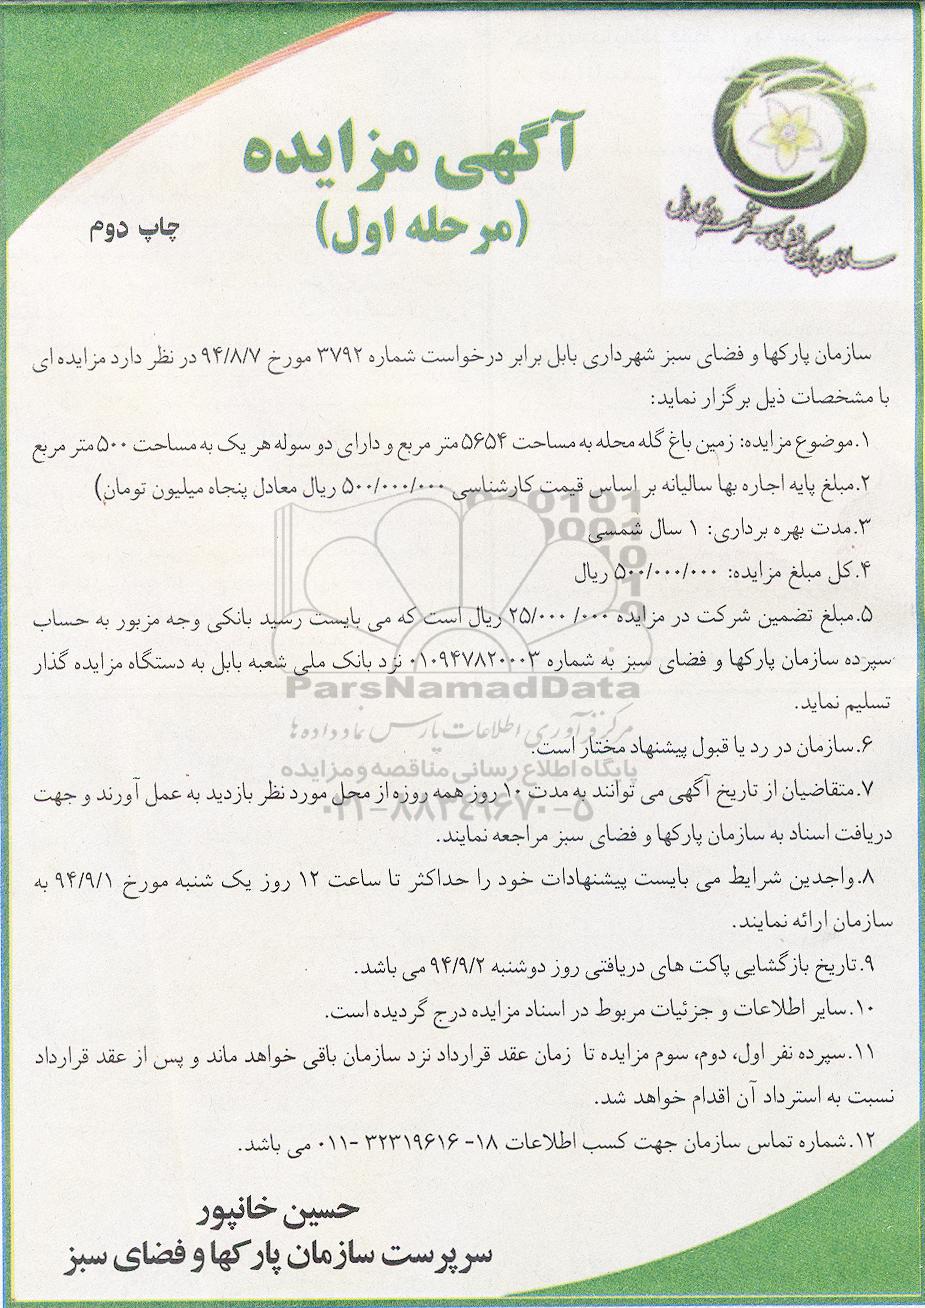 سازمان پارکها و فضای سبز شهرداری بابل
آگهی مزایده
(مرحله اول)
چاپ دوم
سازمان پارکها و فضای سبز شهرداری بابل برابر درخواست شماره ۳۷۹۲ مورخ ۹۴/۸/۷ در نظر دارد مزایده ای
با مشخصات ذیل برگزار نماید:
۱.موضوع مزایده: زمین باغ گله محله به مساحت ۵۶۵۴ متر مربع و دارای دو سوله هر یک به مساحت ۵۰۰ متر مربع
۲.مبلغ پایه اجاره بها سالیانه بر اساس قیمت کارشناسی ۵۰۰/۰۰۰/۰۰۰ ریال معادل پنجاه میلیون تومان)
۳.مدت بهره برداری: ۱ سال شمسی
۴.کل مبلغ مزایده: ۵۰۰/۰۰۰/۰۰۰ ریال
۵.مبلغ تضمین شرکت در مزایده ۲۵/۰۰۰/۰۰۰ ریال است که می بایست رسید بانکی وجه مزبور به حساب
سپرده سازمان پارکها و فضای سبز به شماره ۰۱۰۹۴۷۸۲۰۰۰۳ نزد بانک ملی شعبه بابل به دستگاه مزایده گذار
تسلیم نماید.
۶.سازمان در رد یا قبول پیشنهاد مختار است.
۷.متقاضیان از تاریخ آگهی می توانند به مدت ۱۰ روز همه روزه از محل مورد نظر بازدید به عمل آورند و جهت
دریافت اسناد به سازمان پارکها و فضای سبز مراجعه نمایند.
۸.واجدین شرایط می بایست پیشنهادات خود را حداکثر تا ساعت ۱۲ روز یک شنبه مورخ ۹۴/۹/۱ به
سازمان ارائه نمایند.
۹.تاریخ بازگشایی پاکت های دریافتی روز دوشنبه ۹۴/۹/۲ می باشد.
۱۰.سایر اطلاعات و جزئیات مربوط در اسناد مزایده درج گردیده است.
۱۱.سپرده نفر اول، دوم، سوم مزایده تا زمان عقد قرارداد نزد سازمان باقی خواهد ماند و پس از عقد قرارداد
نسبت به استرداد آن اقدام خواهد شد.
۱۲.شماره تماس سازمان جهت کسب اطلاعات ۱۸- ۳۲۳۱۹۶۱۶ -۰۱۱ می باشد.
حسین خانپور
سرپرست سازمان پارکها و فضای سبز
ParsNamadData
مرکز فرآوری اطلاعات پارس نماد داده ها
پایگاه اطلاع رسانی مناقصه و مزایده
۰۲۱-۸۸۳۴۹۶۷۰-۵